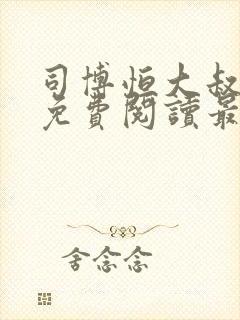 司博恒大叔
免費閱讀最
舍念念